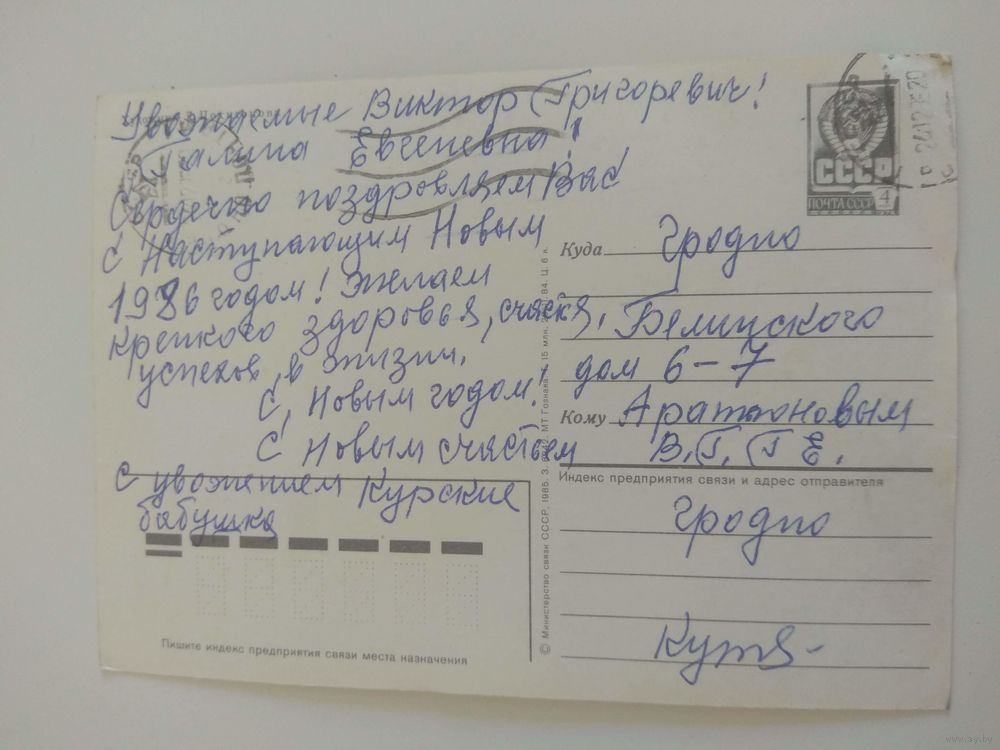 Уважаемые Виктор Григоревич!
Галина Евгеневна!
Сердечно поздровляем Вас
С Наступающим Новым
1986 годом! Желаем
крепкого здоровья, счастя,
успехов в жизни.
С, Новым годом!
С Новым счастьем
с увожением Курские
бабушка
СССР
ПОЧТА СССР
4
Куда Гродно
Белинского
дом 6-7
Кому
В.Г. Г Е.
Индекс предприятия связи и адрес отправителя
Гродно
Пишите индекс предприятия связи места назначения
© Министерство связи СССР, 1985. З. МТ Гознака. 15 млн. 84. Ц. 6 к.
www.ay.by